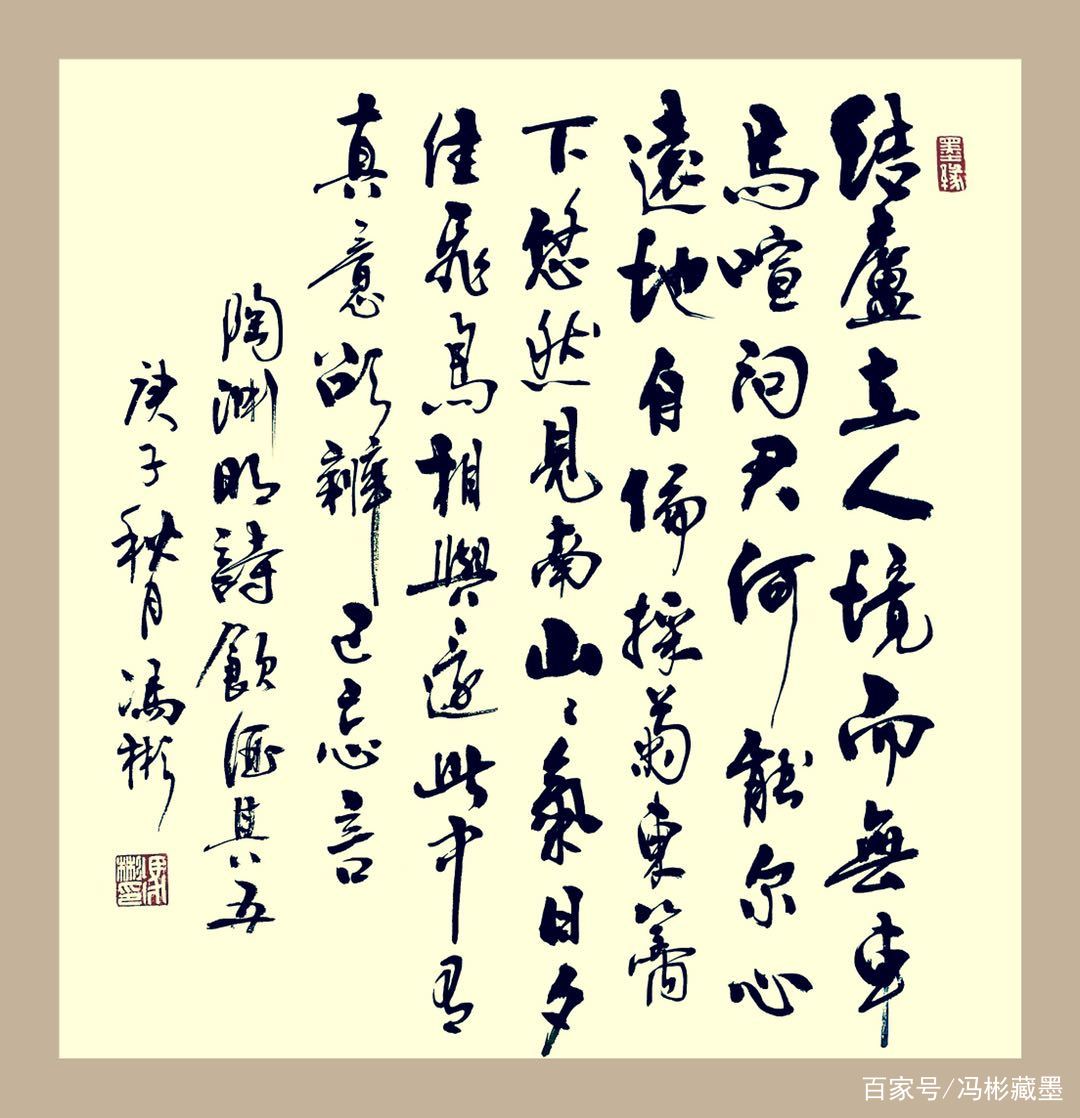 墨緣
結廬在人境而無車
馬喧問君何能尔心
遠地自偏採菊東籬
下悠然見南山〻氣日夕
佳飛鳥相與還此中有
真意欲辨已忘言
陶淵明詩飲酒其五
庚子秋月馮彬
馮彬印
百家号/冯彬藏墨